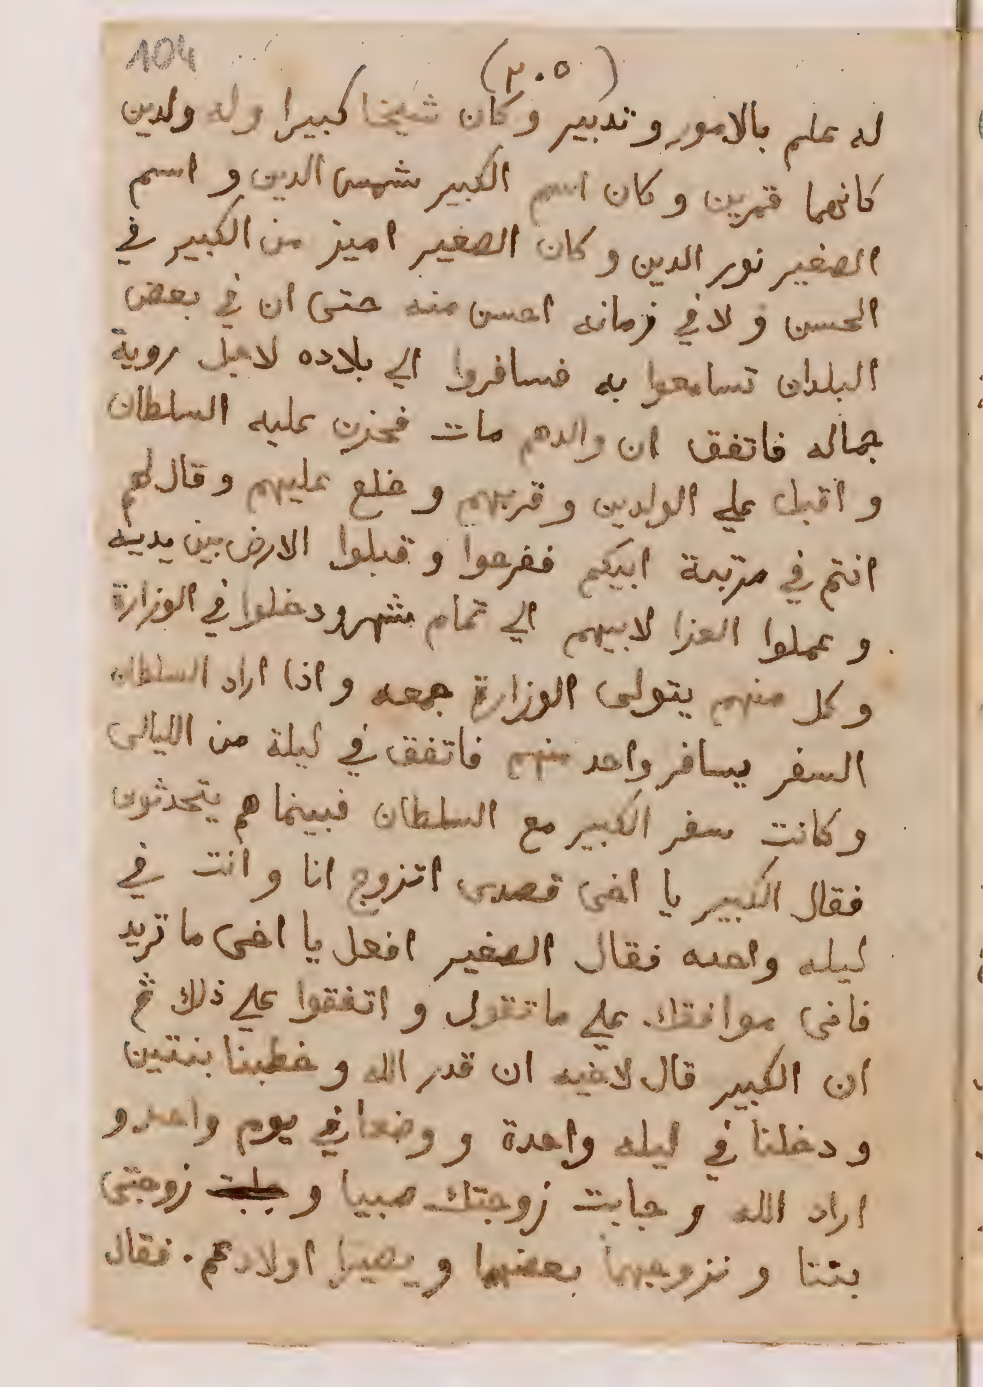 104
(٢٠٥)
له علم بالامور وتدبير وكان شيخا كبيرا وله ولدين
كانهما قمرين و كان اسم الكبير شمس الدين و اسم
الصغير نور الدين و كان الصغير اميز من الكبير في
الحسن و لا في زمانه احسن منه حتى ان في بعض
البلدان تسامعوا به فسافروا الي بلاده لاجل روية
جماله فاتفق ان والدهم مات فحزن عليه السلطان
و اقبل علي الولدين و قربهم و خلع عليهم و قال لهم
انتم في مرتبة ابيكم ففرحوا و قبلوا الارض بين يديه
و عملوا العزا لابيهم الي تمام شهر ودخلوا في الوزارة
و كل منهم يتولى الوزارة جمعه و اذا اراد السلطان
السفر يسافر واحد منهم فاتفق في ليلة من الليالى
و كانت سفر الكبير مع السلطان فبينما هم يتحدثون
فقال الكبير يا اخى قصدى اتزوج انا و انت في
ليله واحده فقال الصغير افعل يا اخى ما تريد
فانى موافقك علي ما تقول و اتفقوا علي ذلك ثم
ان الكبير قال لاخيه ان قدر الله و خطبنا بنتين
و دخلنا في ليله واحدة و وضعا في يوم واحد و
اراد الله و جابت زوجتك صبيا و جابت زوجتى
بنتا و نزوجهما بعضهما و يصيرا اولاد عم. فقال